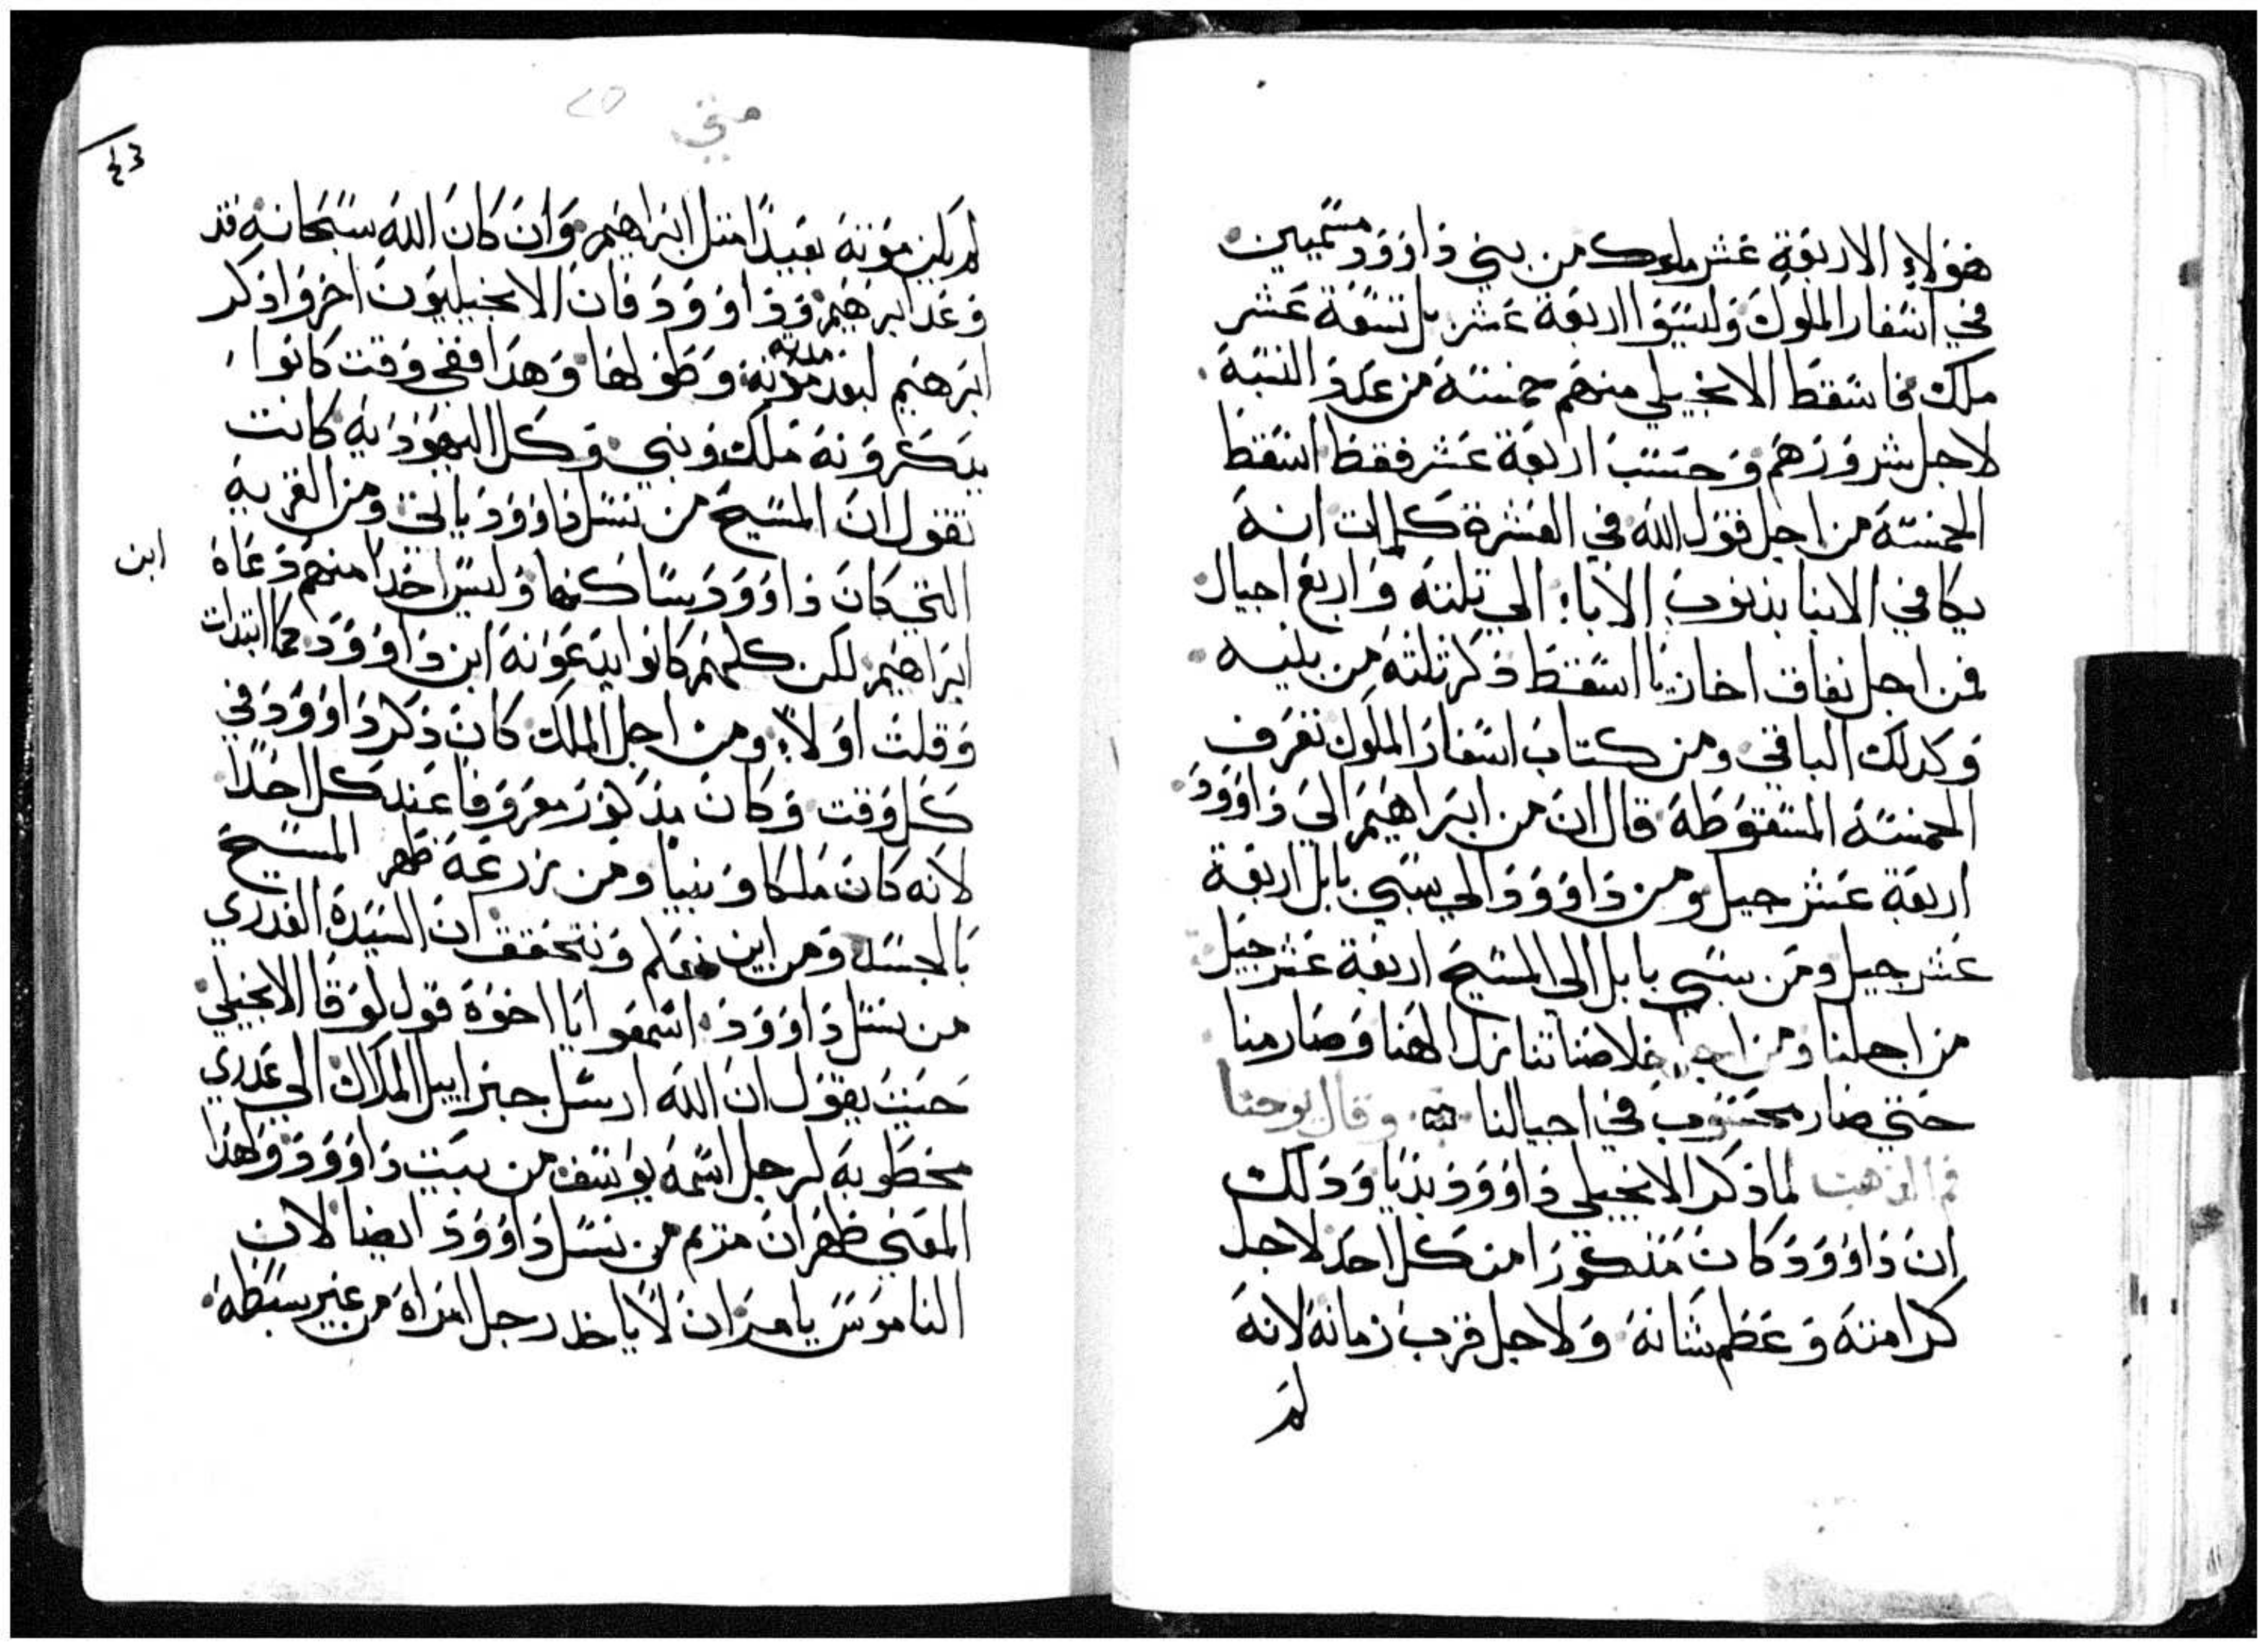 هولاء الاربعة عشر ملوك من بني داوود مسميين
في اسفار الملوك وليسوا اربعة عشر بل تسعة عشر
ملك فاسقط الانجيلي منهم خمسة من عدد النسبة
لاجل شرورهم وحسب اربعة عشر فقط اسقط
الخمسة من اجل قول الله في العشرة كلمات انه
يكافي الابنا بذنوب الاباء الي تلتة واربع اجيال
فمن اجل نفاق اخازيا اسقط ذكر تلتة من بنيه
وكدلك الباقي ومن كتاب اسفار الملوك تعرف
الخمسة المسقوطة قال ان من ابراهيم الي داوود
اربعة عشر جيل ومن داوود الي سبي بابل اربعة
عشر جيل ومن سبي بابل الي المسيح اربعة عشر جيل
من اجلنا ومن اجل خلاصنا تنازل الهنا وصار منا
حتي صار محسوب في اجيالنا وقال يوحنا
فم الدهب لما ذكر الانجيلي داوود بديا ودلك
ان داوود كان مذكورا من كل احد لاجل
كرامته وعظم شانه ولاجل قرب زمانه لانه
لم
متي
٢٥
٤٣
لم يكن موته بعيدا متل ابراهيم وان كان الله سبحانه قد
وعد ابرهيم وداوود فان الانجيليون اخروا ذكر
ابرهيم لبعد مدته وطولها وهدا ففي وقت كانوا
يدكرونه ملك ونبي وكل اليهودية كانت
تقول ان المسيح من نسل داوود ياتي ومن القرية
التي كان داوود يساكنها وليس احدا منهم دعاه ابن
ابراهيم لكن كلهم كانوا يدعونه ابن داوود كما ابتدات
وقلت اولا ومن اجل الملك كان ذكر داوود في
كل وقت وكان مدكور معروفا عند كل احدا
لانه كان ملكا ونبيا ومن زرعه ظهر المسيح
بالجسد ومن اين نعلم ونتحقق ان السيدة العدري
من نسل داوود اسمعوا يا اخوة قول لوقا الانجيلي
حيت يقول ان الله ارسل جبراييل الملاك الي عدري
مخطوبة لرجل اسمه يوسف من بيت داوود ولهدا
المعني ظهر ان مريم من نسل داوود ايضا لان
الناموس يامر ان لا ياخد رجل امراة من غير سبطه